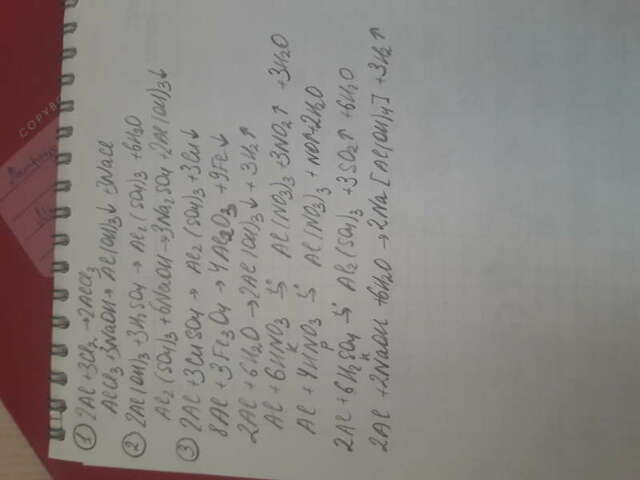 COPYB
① 2Al + 3Cl₂ → 2AlCl₃
AlCl₃ + 3NaOH → Al(OH)₃↓ + 3NaCl
② 2Al(OH)₃ + 3H₂SO₄ → Al₂(SO₄)₃ + 6H₂O
Al₂(SO₄)₃ + 6NaOH → 3Na₂SO₄ + 2Al(OH)₃↓
③ 2Al + 3CuSO₄ → Al₂(SO₄)₃ + 3Cu↓
8Al + 3Fe₃O₄ → 4Al₂O₃ + 9Fe↓
2Al + 6H₂O → 2Al(OH)₃↓ + 3H₂↑
Al + 6HNO₃ t° → Al(NO₃)₃ + 3NO₂↑ + 3H₂O
к
Al + 4HNO₃ t° → Al(NO₃)₃ + NO↑ + 2H₂O
р
2Al + 6H₂SO₄ t° → Al₂(SO₄)₃ + 3SO₂↑ + 6H₂O
к
2Al + 2NaOH + 6H₂O → 2Na[Al(OH)₄] + 3H₂↑